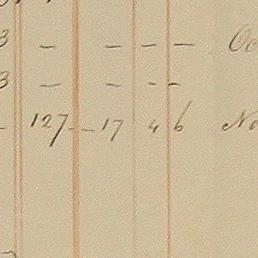 3 — — — — Oc
3 — — — —
— 127 — 17 4 6 No